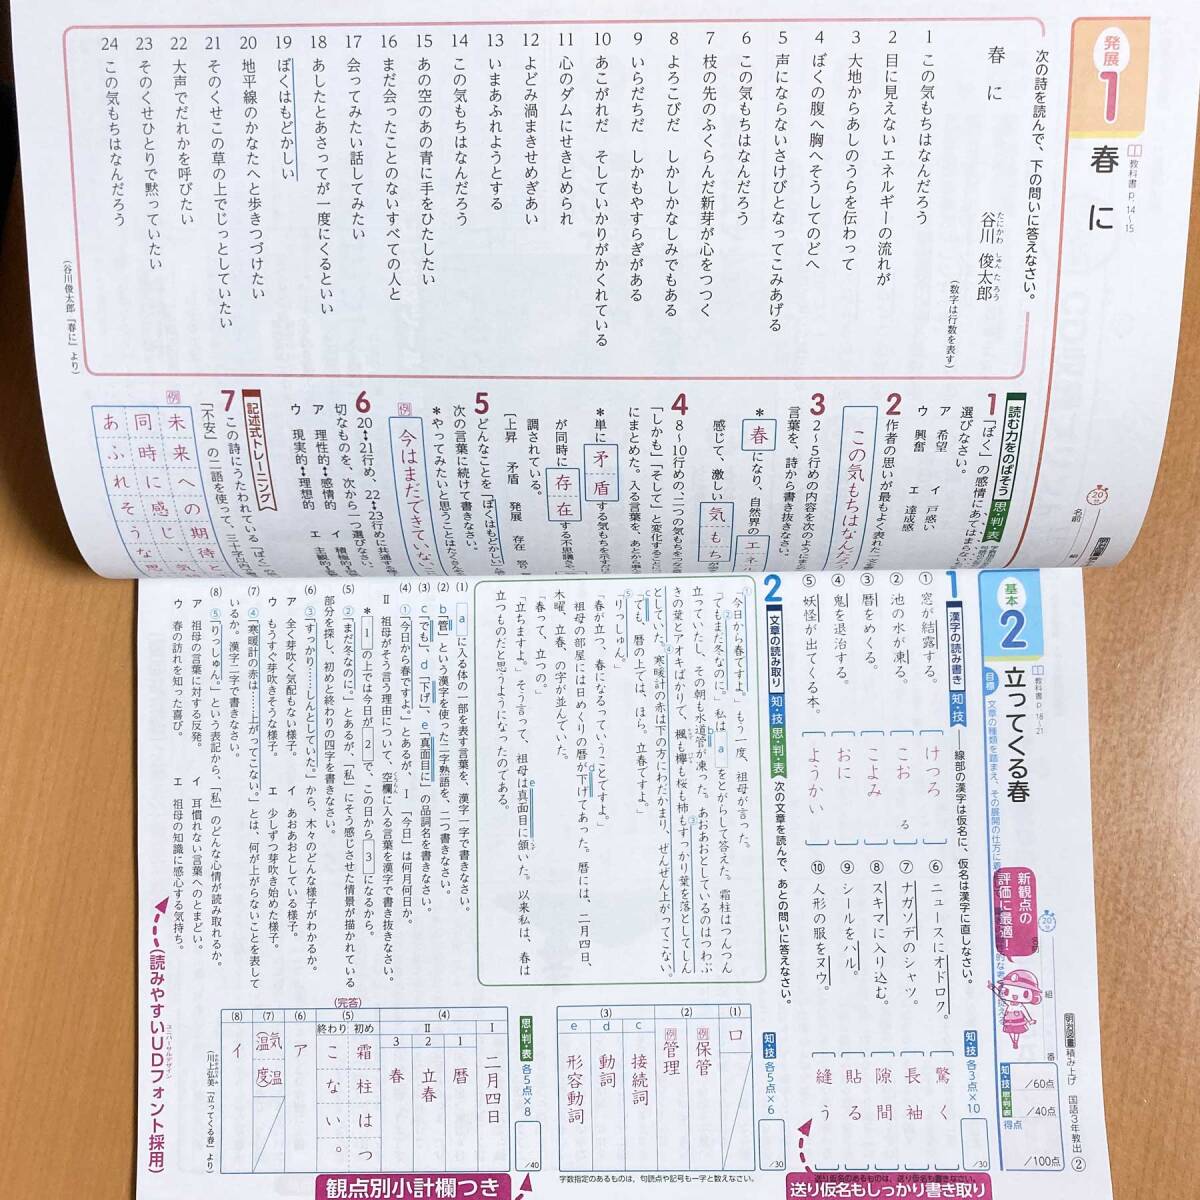 発展
1
春に
教科書 p.14~15
20分
名前
組
次の詩を読んで、下の問いに答えなさい。
春に
谷川 俊太郎
たにかわ しゅんたろう
(数字は行数を表す)
1 この気もちはなんだろう
2 目に見えないエネルギーの流れが
3 大地からあしのうらを伝わって
4 ぼくの腹へ胸へそうしてのどへ
5 声にならないさけびとなってこみあげる
6 この気もちはなんだろう
7 枝の先のふくらんだ新芽が心をつつく
8 よろこびだ しかしかなしみでもある
9 いらだちだ しかもやすらぎがある
10 あこがれだ そしていかりがかくれている
11 心のダムにせきとめられ
12 よどみ渦まきせめぎあい
13 いまあふれようとする
14 この気もちはなんだろう
15 あの空のあの青に手をひたしたい
16 まだ会ったことのないすべての人と
17 会ってみたい話してみたい
18 あしたとあさってが一度にくるといい
19 ぼくはもどかしい
20 地平線のかなたへと歩きつづけたい
21 そのくせこの草の上でじっとしていたい
22 大声でだれかを呼びたい
23 そのくせひとりで黙っていたい
24 この気もちはなんだろう
(谷川俊太郎『春に』より)
読む力をのばそう 思・判・表
1 「ぼく」の感情にあてはまら
選びなさい。
ア 希望 イ 戸惑い
ウ 興奮 エ 達成感
2 作者の思いが最もよく表れた
この気もちはなんだろ
3 2~5行めの内容を次のようにま
言葉を、詩から書き抜きなさい。
*春になり、自然界のエネル
感じて、激しい気もち
4 8~10行めの、二つの気もちを
「しかも」「そして」と変化することに
にまとめた。入る言葉を、あとから
*単に矛盾する気もちを示すだけ
が同時に存在する不思議さ
調されている。
〔上昇 矛盾 発展 存在
5 どんなことを「ぼくはもどかしい」
次の言葉に続けて書きなさい。
*やってみたいと思うことはたく
例 今はまだできていな
6 20↔21行め、22↔23行めに共通する
切なものを、次から一つ選びなさい。
ア 理性的↔感情的 イ 積極
ウ 現実的↔理想的 エ 主観的
記述式トレーニング
7 この詩にうたわれている「ぼく」の
「不安」の二語を使って、三十字以内
例 未来への期待と
同時に感じ、気
あふれそうな思
基本
2
立ってくる春
教科書 p.16~21
目標 文章の種類を踏まえ、その展開の仕方に着
20分
新観点の評価に最適!
名前
組
番
明治図書 積み上げ 国語3年教出②
知・技 /60点
思・判・表 /40点
得点 /100点
1 漢字の読み書き 知・技 ──線部の漢字は仮名に、仮名は漢字に直しなさい。
①窓が結露する。
けつろ
②池の水が凍る。
こお る
③暦をめくる。
こよみ
④鬼を退治する。
おに
⑤妖怪が出てくる本。
ようかい
⑥ニュースにオドロク。
驚く
⑦ナガソデのシャツ。
長袖
⑧スキマに入り込む。
隙間
⑨シールをハル。
貼る
⑩人形の服をヌウ。
縫う
知・技 各3点×10
/30
送り仮名のあるものは、送り仮名も書きなさい。
送り仮名もしっかり書き取り
2 文章の読み取り 知・技 思・判・表 次の文章を読んで、あとの問いに答えなさい。
①「今日から春ですよ。」もう一度、祖母が言った。
②「でもまだ冬なのに。」私は a をとがらして答えた。霜柱はつんつん
立っていたし、その朝も水道管が凍った。あおあおとしているのはつわぶ
きの葉とアオキばかりで、楓も欅も桜も柿も③すっかり葉を落としてしん
としていた。④寒暖計の赤は下の方にわだかまり、ぜんぜん上がってこない。
「でも、暦の上では、ほら。立春ですよ。」
⑤「りっしゅん。」
「春が立つ、春になるっていうことですよ。」
祖母の部屋には日めくりの暦が下げてあった。暦には、二月四日、
木曜、立春、の字が並んでいた。
「春って、立つの。」
「立ちますよ。」そう言って、祖母は真面目に頷いた。以来私は、春は
立つものだと思うようになったのである。
(川上弘美『立ってくる春』より)
(1) a に入る体の一部を表す言葉を、漢字一字で書きなさい。
(2) b「管」という漢字を使った二字熟語を、二つ書きなさい。
(3) c「でも」、d「下げ」、e「真面目に」の品詞名を書きなさい。
(4) ①「今日から春ですよ。」とあるが、Ⅰ「今日」は何月何日か。
Ⅱ 祖母がそう言う理由について、空欄に入る言葉を漢字で書き抜きなさい。
*1の上では今日が2で、この日から3になるから。
(5) ②「まだ冬なのに。」とあるが、「私」にそう感じさせた情景が描かれている
部分を探し、初めと終わりの四字を書きなさい。
(6) ③「すっかり……しんとしていた。」から、木々のどんな様子がわかるか。
ア 全く芽吹く気配もない様子。 イ あおあおとしている様子。
ウ もうすぐ芽吹きそうな様子。 エ 少しずつ芽吹き始めた様子。
(7) ④「寒暖計の赤は……上がってこない。」とは、何が上がらないことを表して
いるか。漢字二字で書きなさい。
(8) ⑤「りっしゅん。」という表記から、「私」のどんな心情が読み取れるか。
ア 祖母の言葉に対する反発。 イ 耳慣れない言葉へのとまどい。
ウ 春の訪れを知った喜び。 エ 祖母の知識に感心する気持ち。
知・技 各5点×6
/30
(1) 口
(2) 例 保管
例 管理
(3) c 接続詞
d 動詞
e 形容動詞
字数指定のあるものは、句読点や記号も一字と数えなさい。
思・判・表 各5点×8
/40
(4) Ⅰ 二月四日
Ⅱ 1 暦
2 立春
3 春
(完答)
(5) 初め 霜柱はつ
終わり こない。
(6) ア
(7) 気温
温度
(8) イ
観点別小計欄つき
(読みやすいUDフォント採用)
ユニバーサルデザイン